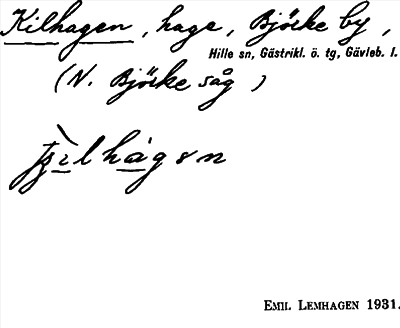 Kilhagen, hage, Björke by,
Hille sn, Gästrikl. ö. tg, Gävleb. l.
(N. Björke såg)
ʈʂìlhàgɘn
EMIL LEMHAGEN 1931.